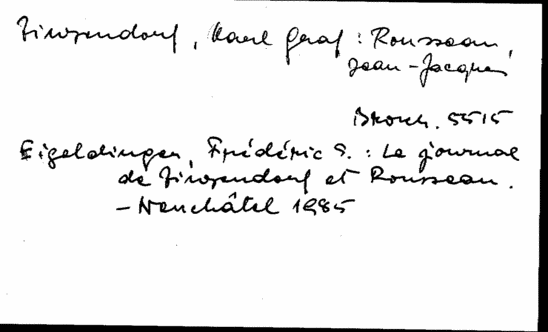 Zinzendorf, Karl Graf : Rousseau,
Jean-Jacques
Brosch. 5515
Eigeldinger, Frédéric S. : Le journal
de Zinzendorf et Rousseau.
- Neuchâtel 1985